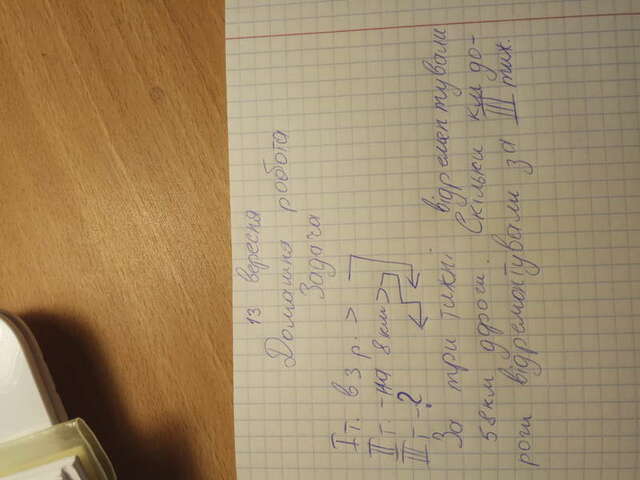 13 вересня
Домашня робота
Задача
I т. в 3 р. >
II т. - на 8 км >
III т. - ?
За три тижні відремонтували
58 км дроги. Скільки км до-
роги відремонтували за III тиж.